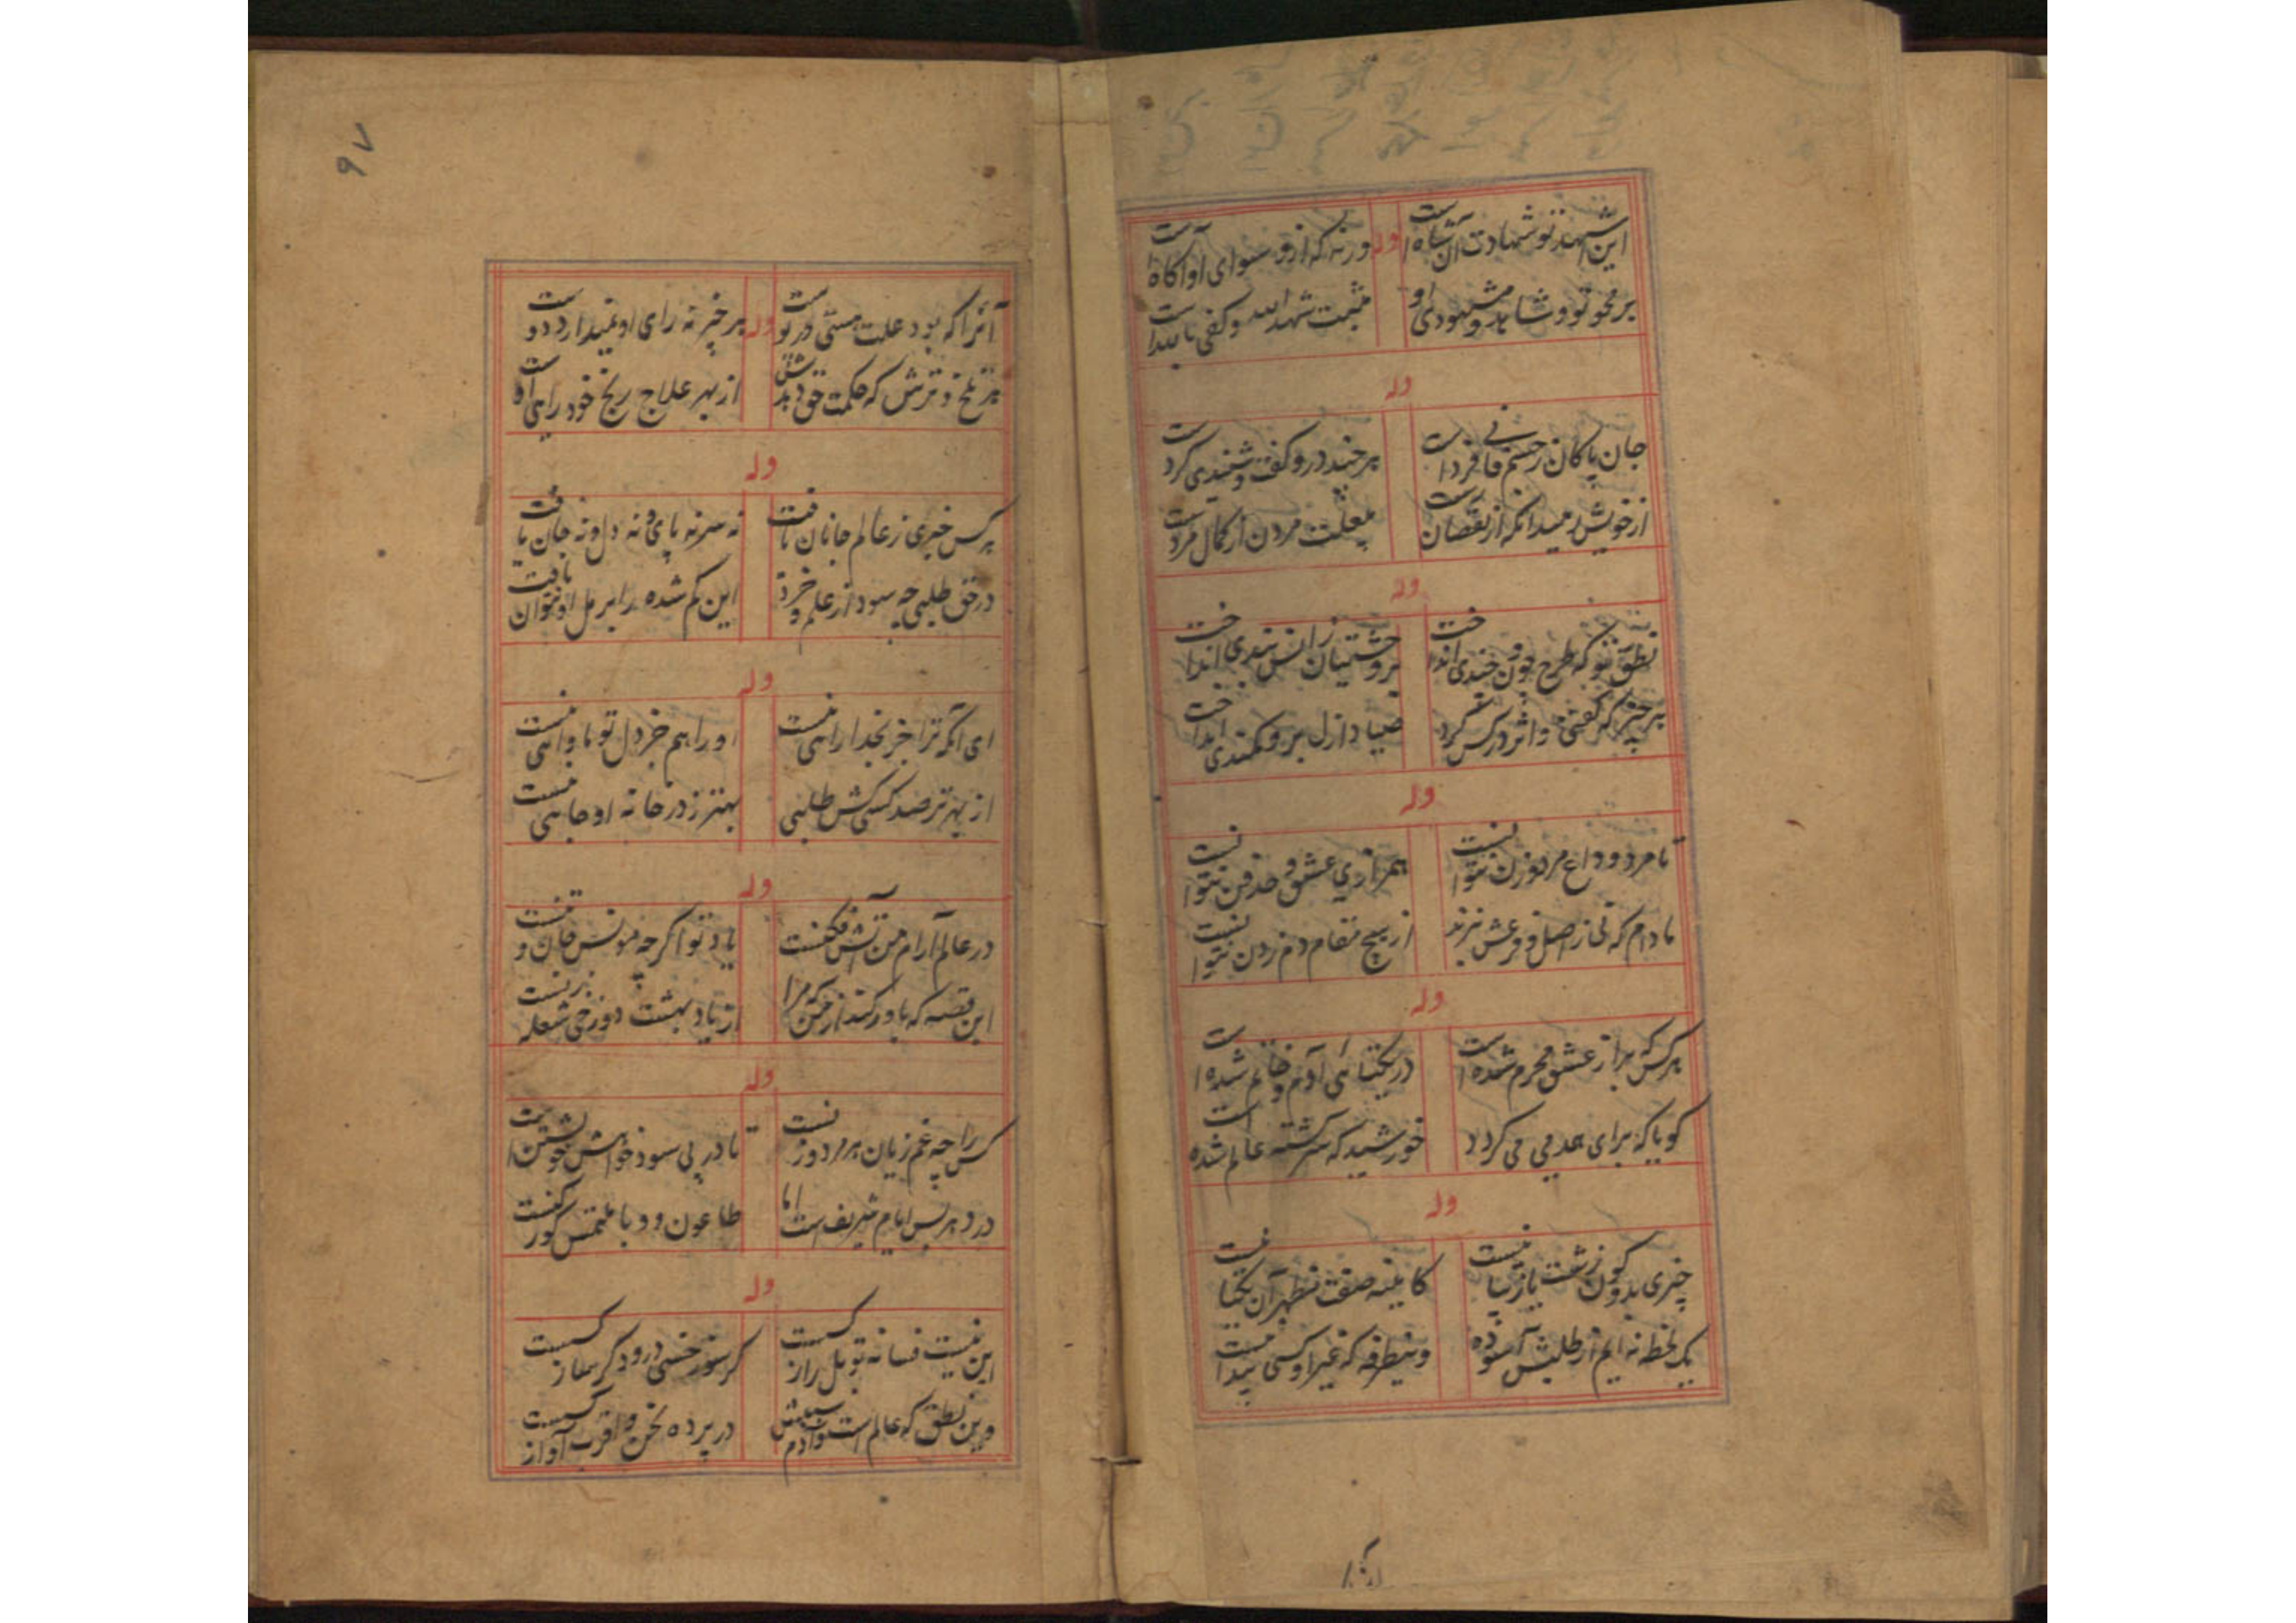 این اشهد تو شهادت آن شاه است
وله
ورنه که ازو سوای او آگاه است
بر محو تو و شاهد و مشهودی او
مثبت شهد الله و کفی بالله است
وله
جان پاکان ز جسم فانی فرد است
هر چند درو گفت و شنیدی کرد است
از خویش رمید آنکه از نقصان رست
مردن از کمال مرد است
وله
نطق تو که طرح چون و چندی انداخت
بر وحشتیان ز انس بندی انداخت
هر چیز که گفتی و اثر در کس کرد
صیاد ازل برو کمندی انداخت
وله
تا مرد و وداع مرد و زن نتوانست
همرازی عشق و فن نتوانست
مادام که نی ز اصل و فرعش نبرند
از هیچ مقام دم زدن نتوانست
وله
هر کس که براز عشق محرم شده است
در یکتائی آدم و خاتم شده است
گویا که برای همدمی می گردد
خورشید که سرگشته عالم شده است
وله
چیزی بدو کون زشت یا زیبا نیست
کائینه صفت مظهر آن یکتا نیست
یک لحظه نه ایم از طلبش آسوده
وینطرفه که غیر او کسی پیدا نیست
آنرا
۹۷
آنرا که بود علت هستی در پوست
وله
هر خیر نه رای او نمیدارد دوست
هر تلخ و ترش که حکمت حق دهدش
از بهر علاج رنج خود راهی اوست
وله
هر کس خبری ز عالم جانان یافت
نه سر نه پای و نه دل و نه جان یافت
در حق طلبی چه سود از علم و خرد
این گم شده را بر مل او نتوان یافت
وله
ای آنکه ترا جز بخدا راهی نیست
او را هم جز دل تو ماواهی نیست
از بهر تو صد کسی کش طلبی
بهتر ز در خانه او جاهی نیست
وله
در عالم آرام من آتش فکنست
یاد تو اگرچه مونس جان و تنست
این قصه که باور کند از من که مرا
از یاد بهشت دوزخی شعله زنست
وله
کس را چه غم زیان هر مرد و زنست
تا در پی سود خواهش خویشتن است
درد هر بس ایام شریف است اما
طاعون و وبا ملتمس گورکنست
وله
این نیست فسانه تو بل راز کسیست
گر سوز خسی درود گر ساز کسیست
وین نطق که عالم است و آدم سپهش
در پرده نحن و اقرب آواز کسیست